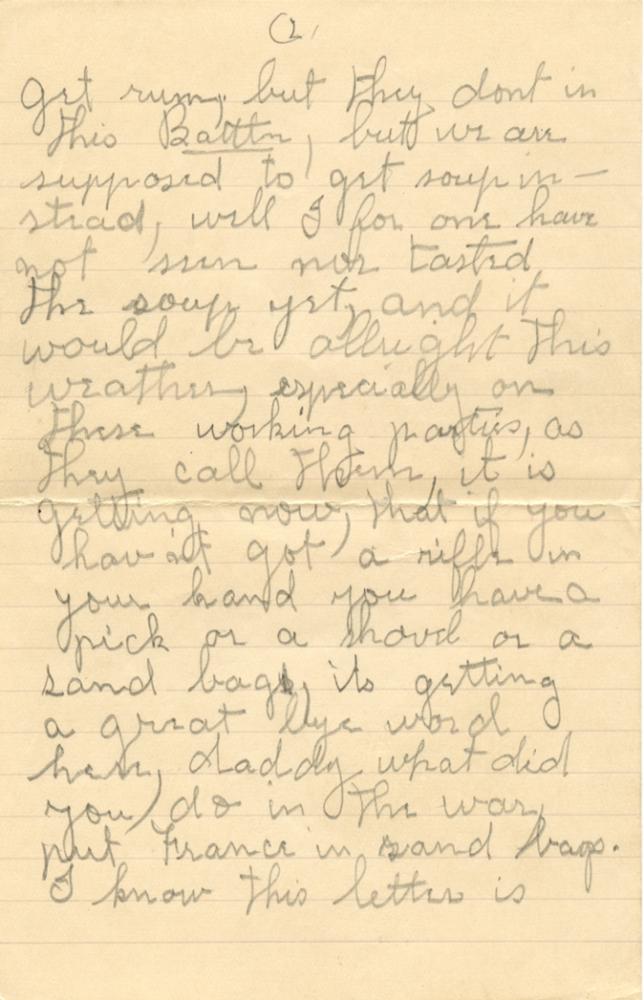 (2,
get rum, but they dont in
this Battn, but we are
supposed to get soup in-
stead, well I for one have
not seen nor tasted
the soup yet, and it
would be allright this
weather, especially on
these working parties, as
they call them, it is
getting now, that if you
hav'nt got a riffle in
your hand you have a
pick or a shovel or a
sand bag, its getting
a great bye word
here, daddy what did
you do in the war,
put France in sand bags.
I know this letter is